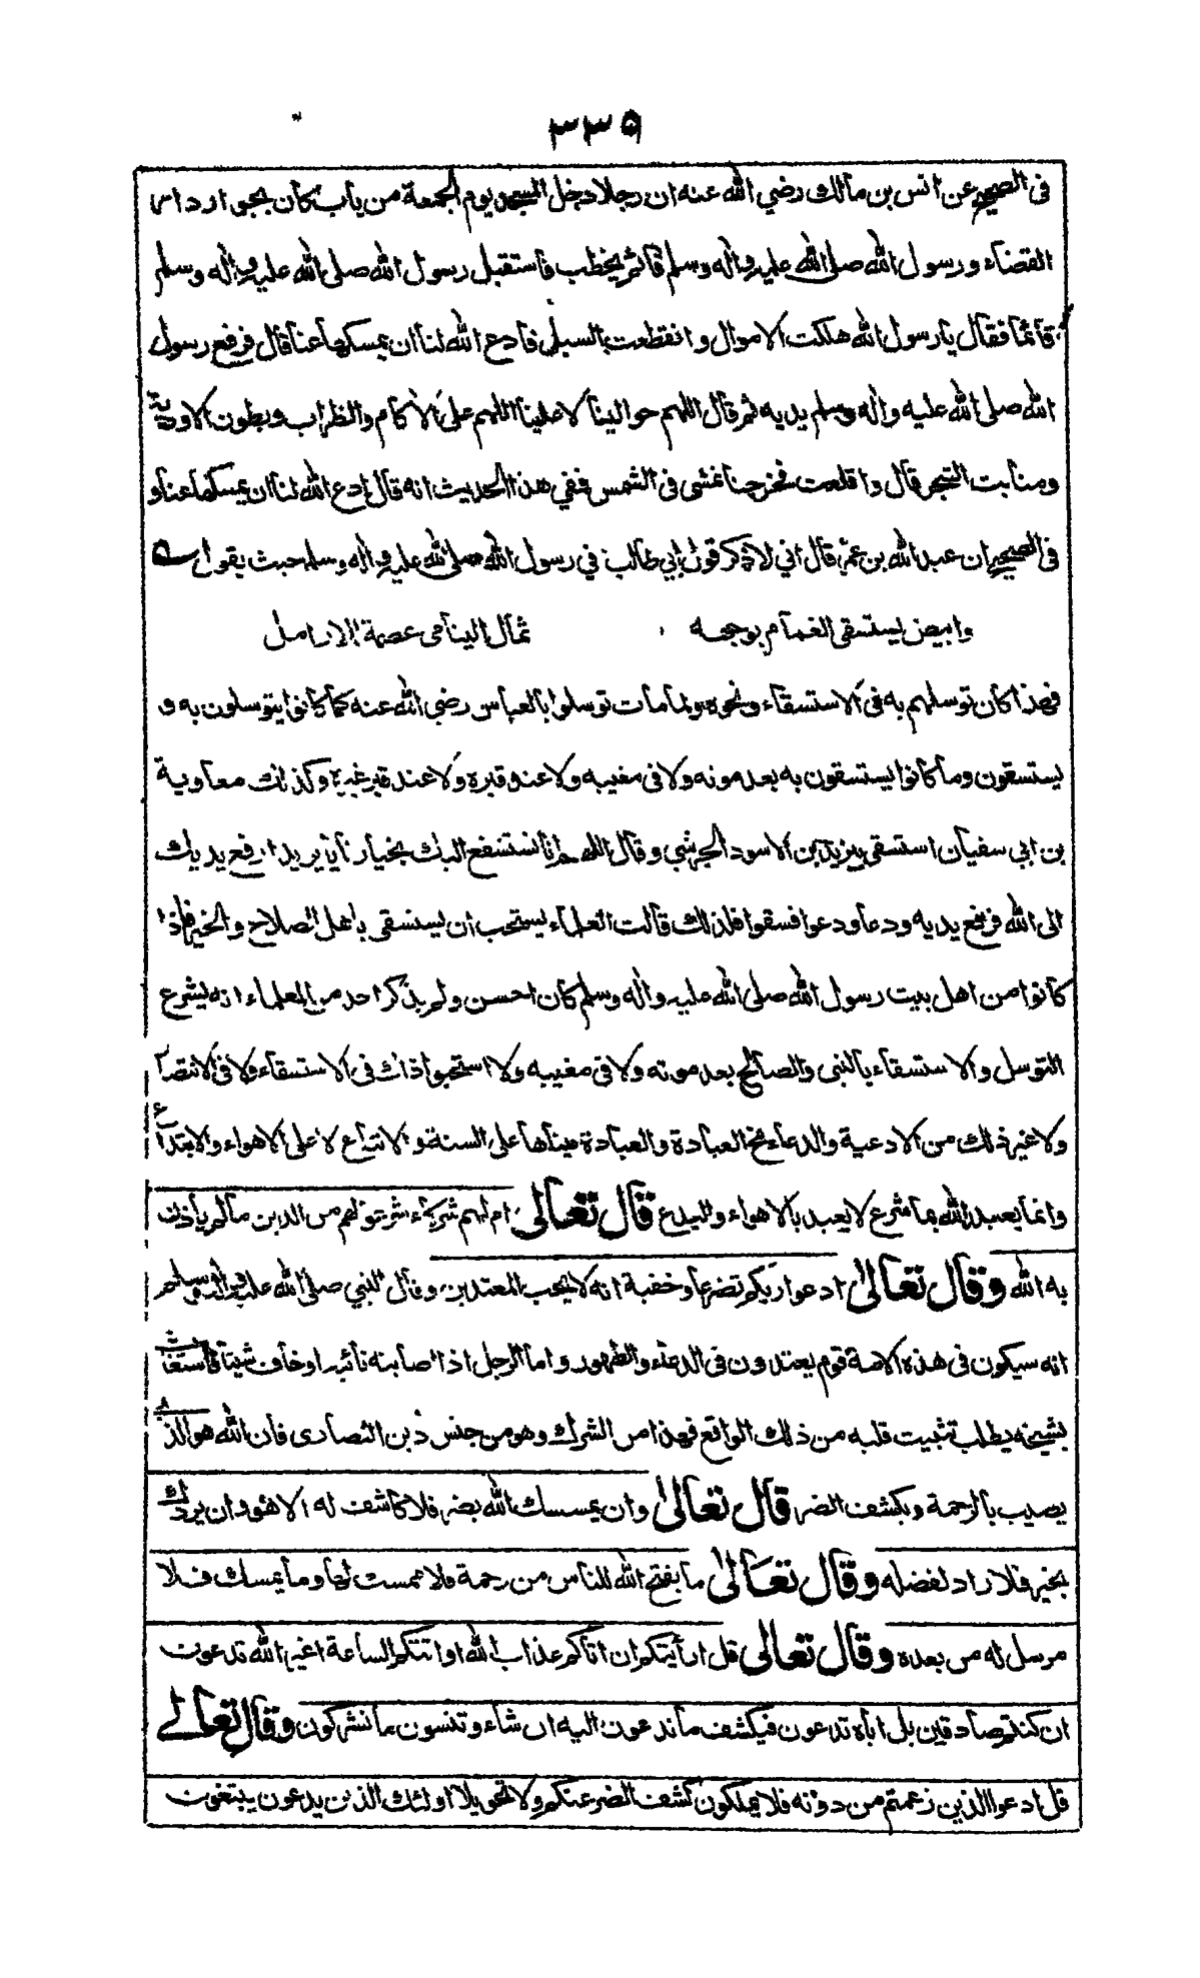 ٣٣٥
فى الصحيح عن انس بن مالك رضي الله عنه ان رجلا دخل المسجد يوم الجمعة من باب كان بجوار دار
القضاء ورسول الله صلى الله عليه واله وسلم قائم يخطب فاستقبل رسول الله صلى الله عليه واله وسلم
قائما فقال يا رسول الله هلكت الاموال وانقطعت السبل فادع الله لنا ان يمسكها عنا قال فرفع رسول
الله صلى الله عليه واله وسلم يديه ثم قال اللهم حوالينا لا علينا اللهم على الاكام والظراب وبطون الاودية
ومنابت الشجر قال واقلعت فخرجنا نمشى فى الشمس ففي هذا الحديث انه قال ادع الله لنا ان يمسكها عنا و
فى الصحيح ان عبد الله بن عمر قال اني لاذكر قول ابي طالب في رسول الله صلى الله عليه واله وسلم حيث يقول
وابيض يستسقى الغمام بوجهه ثمال اليتامى عصمة للارامل
فهذا كان توسلهم به فى الاستسقاء ونحوه ولما مات توسلوا بالعباس رضي الله عنه كما كانوا يتوسلون به و
يستسقون وما كانوا يستسقون به بعد موته ولا فى مغيبه ولا عند قبره ولا عند قبر غيره وكذلك معاوية
بن ابي سفيان استسقى بيزيد بن الاسود الجرشي وقال اللهم انا نستشفع اليك بخيارنا يا يزيد ارفع يديك
الى الله فرفع يديه ودعا ودعوا فسقوا فلذلك قالت العلماء يستحب ان يستسقى باهل الصلاح والخير فاذا
كانوا من اهل بيت رسول الله صلى الله عليه واله وسلم كان احسن ولم يذكر احد من العلماء انه يشرع
التوسل والاستسقاء بالنبى والصالح بعد موته ولا فى مغيبه ولا استحبوا ذلك فى الاستسقاء ولا فى الانتصار
ولا غير ذلك من الادعية والدعاء مخ العبادة والعبادة مبناها على السنة والاتباع لا على الاهواء والابتداع
وانما يعبد الله بما شرع لا يعبد بالاهواء والبدع قال تعالى ام لهم شركاء شرعوا لهم من الدين ما لم ياذن
به الله وقال تعالى ادعوا ربكم تضرعا وخفية انه لا يحب المعتدين وقال النبي صلى الله عليه واله وسلم
انه سيكون فى هذه الامة قوم يعتدون فى الدعاء والطهور واما الرجل اذا اصابته نائبة او خاف شيئا فاستغاث
بشيخه يطلب تثبيت قلبه من ذلك الواقع فهذا من الشرك وهو من جنس دين النصارى فان الله هو الذي
يصيب بالرحمة ويكشف الضر قال تعالى وان يمسسك الله بضر فلا كاشف له الا هو وان يردك
بخير فلا راد لفضله وقال تعالى ما يفتح الله للناس من رحمة فلا ممسك لها وما يمسك فلا
مرسل له من بعده وقال تعالى قل ارأيتكم ان اتاكم عذاب الله او اتتكم الساعة اغير الله تدعون
ان كنتم صادقين بل اياه تدعون فيكشف ما تدعون اليه ان شاء وتنسون ما تشركون وقال تعالى
قل ادعوا الذين زعمتم من دونه فلا يملكون كشف الضر عنكم ولا تحويلا اولئك الذين يدعون يبتغون